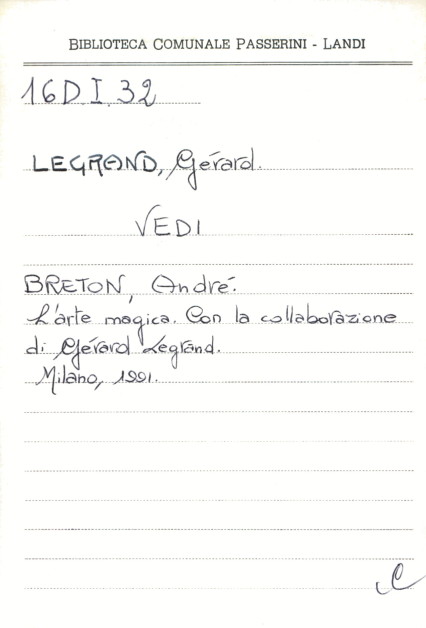 BIBLIOTECA COMUNALE PASSERINI - LANDI
16 D I. 32
LEGRAND, Gérard.
VEDI
BRETON, André.
L'arte magica. Con la collaborazione
di Gérard Legrand.
Milano, 1991.